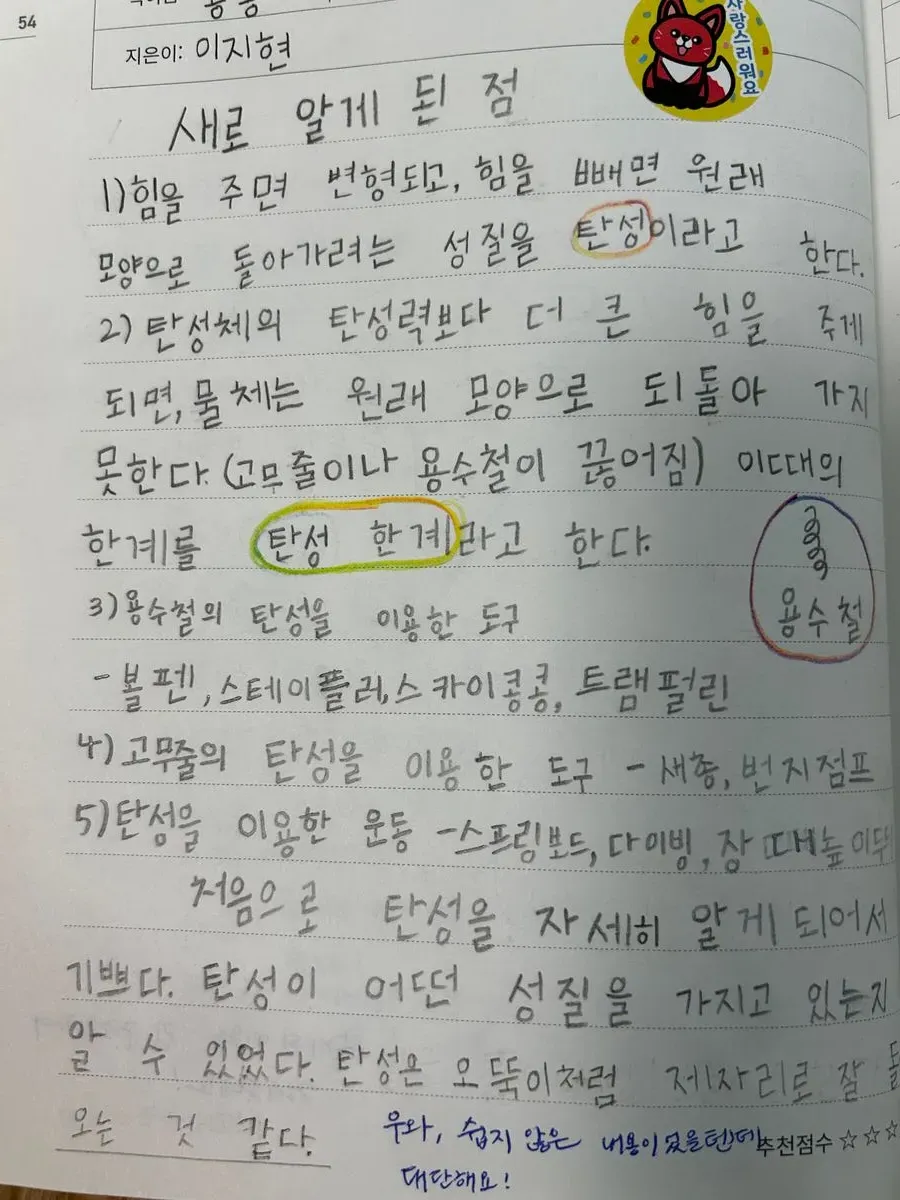 54
지은이: 이지현
사랑스러워요
새로 알게 된 점
1) 힘을 주면 변형되고, 힘을 빼면 원래
모양으로 돌아가려는 성질을 탄성이라고 한다.
2) 탄성체의 탄성력보다 더 큰 힘을 주게
되면, 물체는 원래 모양으로 되돌아 가지
못한다. (고무줄이나 용수철이 끊어짐) 이때의
한계를 탄성 한계라고 한다.
용수철
3) 용수철의 탄성을 이용한 도구
- 볼펜, 스테이플러, 스카이콩콩, 트램펄린
4) 고무줄의 탄성을 이용한 도구 - 새총, 번지점프
5) 탄성을 이용한 운동 - 스프링보드, 다이빙, 장대높이뛰
처음으로 탄성을 자세히 알게 되어서
기쁘다. 탄성이 어떤 성질을 가지고 있는지
알 수 있었다. 탄성은 오뚝이처럼 제자리로 잘 돌
오는 것 같다.
우와, 쉽지 않은 내용이었을텐데
대단해요!
추천점수 ☆☆☆